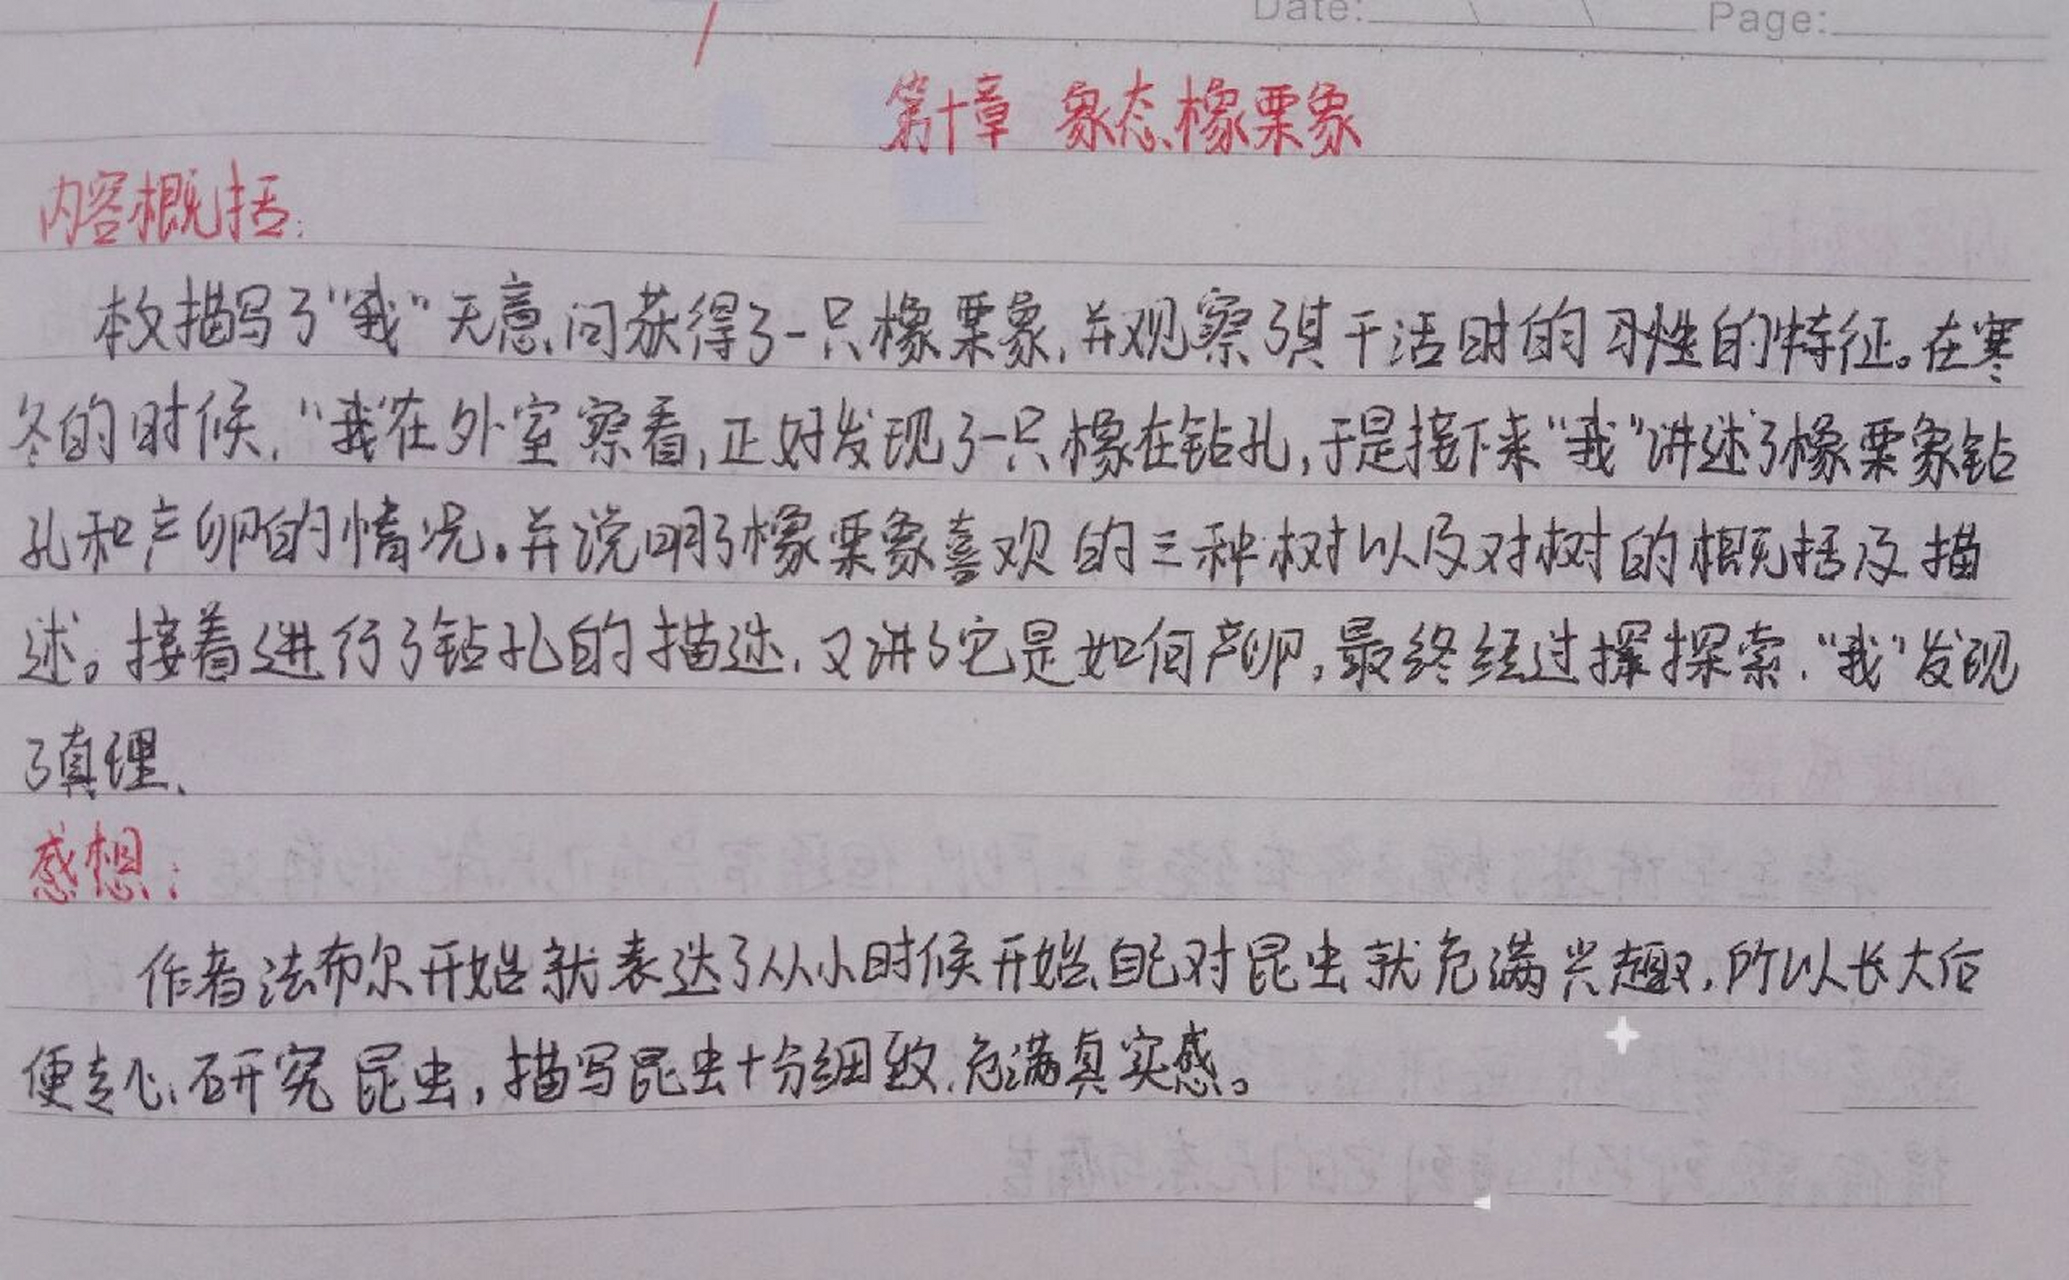 Date: Page:
第十章 象态橡栗象
内容概括:
本文描写了“我”无意间获得了一只橡栗象,并观察了其干活时的习性的特征。在寒
冬的时候,“我”在外室察看,正好发现了一只橡在钻孔,于是接下来“我”讲述了橡栗象钻
孔和产卵的情况。并说明了橡栗象喜欢的三种树以及对树的概括及描
述。接着进行了钻孔的描述,又讲了它是如何产卵,最终经过探索,“我”发现
了真理、
感想:
作者法布尔开始就表达了从小时候开始自己对昆虫就充满兴趣,所以长大后
便专心研究昆虫,描写昆虫十分细致,充满真实感。